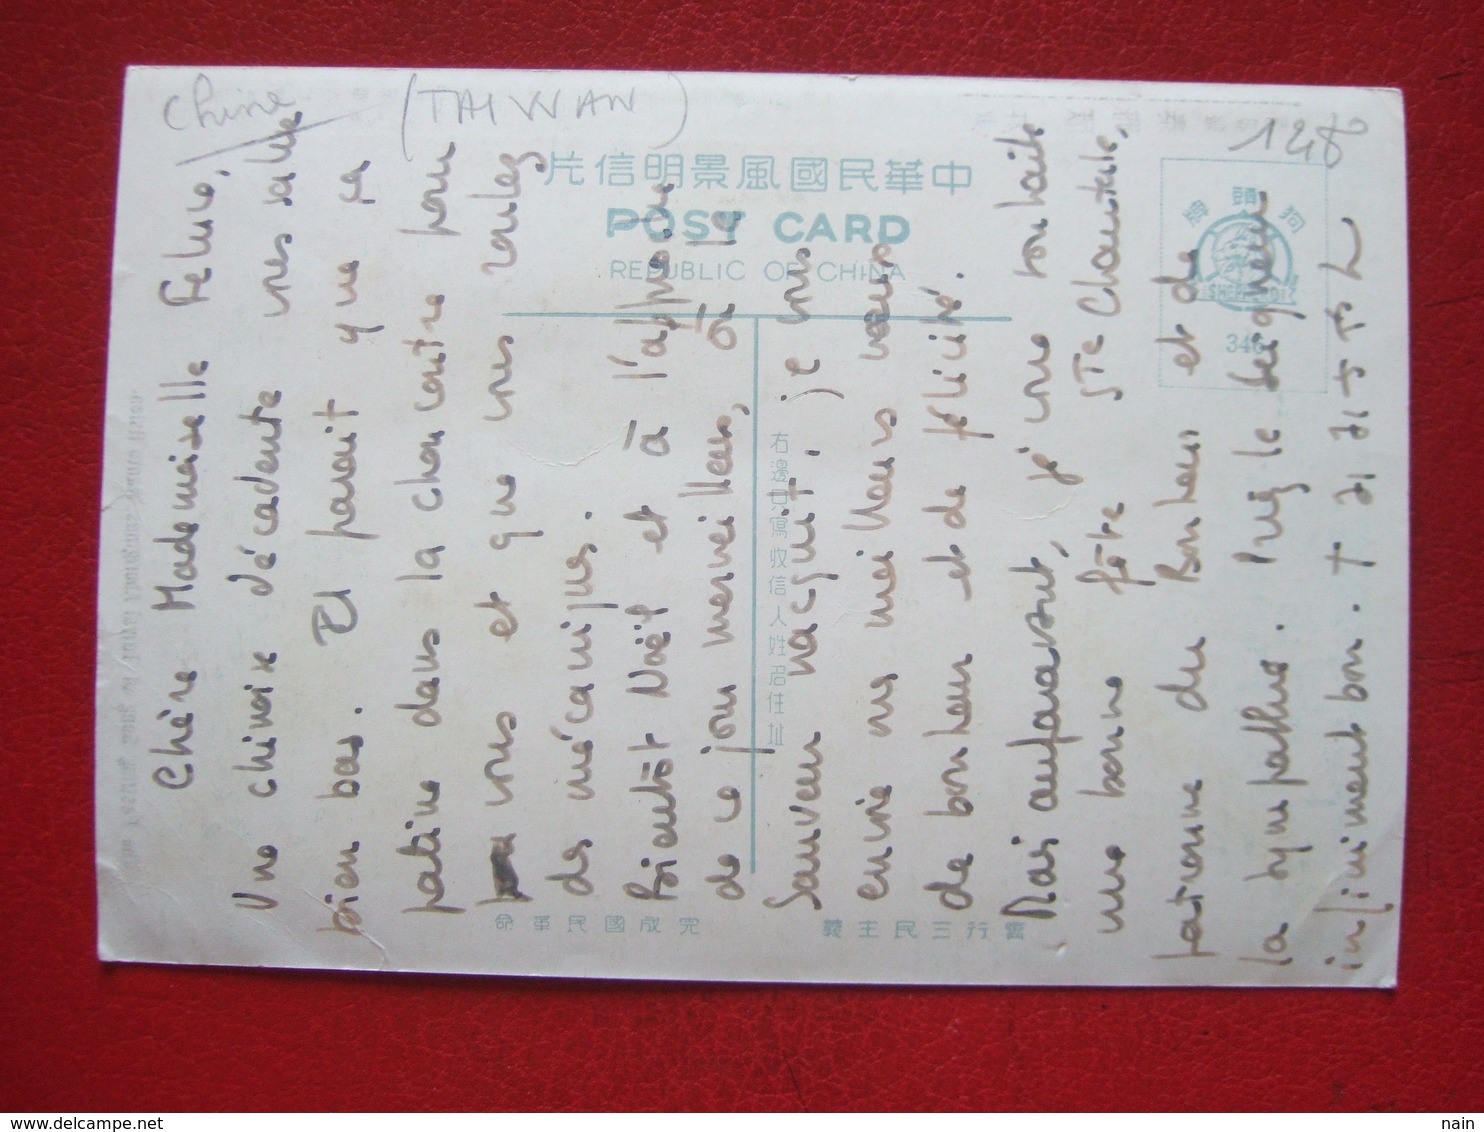 Chine (TAIWAN)
128
中華民國風景明信片
POST CARD
REPUBLIC OF CHINA
狗頭牌
SHEPHERD
346
右邊只寫收信人姓名住址
實行三民主義
完成國民革命
Chère Mademoiselle
Une chinoise décadente vous salue
bien bas. Il parait que ça
patine dans la choucroute pour
vous et que vous roulez
des mécaniques.
Bientôt Noël et à l'approche
de ce jour merveilleux, où le
Sauveur nacquit. je vous
envoie mes meilleurs voeux
de bonheur et de félicité.
Mais auparavant, je vous souhaite
une bonne fête Ste Chantale,
patronne du Bonheur et de
la sympathie. le Seigneur
infiniment bon. +